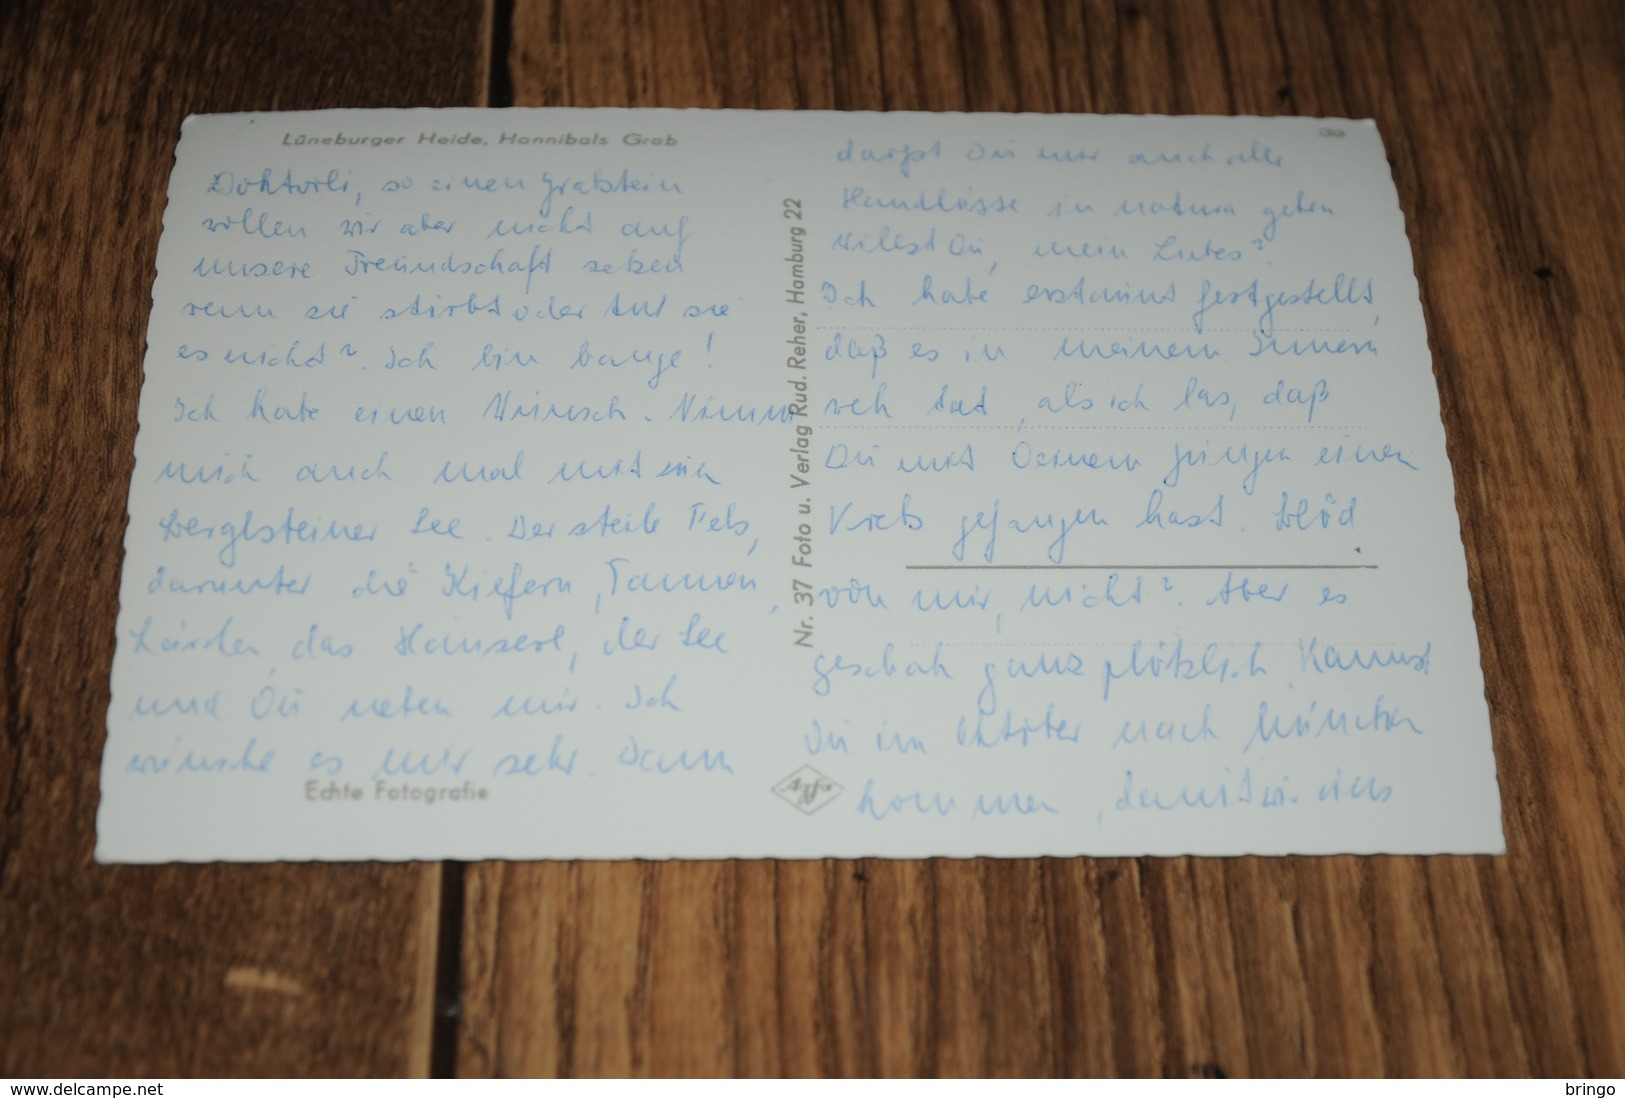 Lüneburger Heide, Hannibals Grab
39
Doktorli, so einen Grabstein
wollen wir aber nicht auf
unsere Freundschaft setzen
wenn sie stirbt oder tut sie
es nicht? Ich bin bange!
Ich habe einen Wunsch. Nimm
mich auch mal mit zum
Berglsteiner See. Der steile Fels,
darunter die Kiefern, Tannen,
Lärchen, das Häuserl, der See
und Du neben mir. Ich
wünsche es mir sehr. Dann
Echte Fotografie
Nr. 37 Foto u. Verlag Rud. Reher, Hamburg 22
Agfa
darfst Du mir auch alle
Handküsse in natura geben
willst Du, mein Liebes?
Ich habe erstaunt festgestellt,
daß es in meinem Innern
weh tat, als ich las, daß
Du mit Deinem Jungen einen
Krebs gefangen hast. Blöd
von mir, nicht? Aber es
geschah ganz plötzlich. Kannst
Du im Oktober nach München
kommen, damit wir uns
delcampe.net
bringo